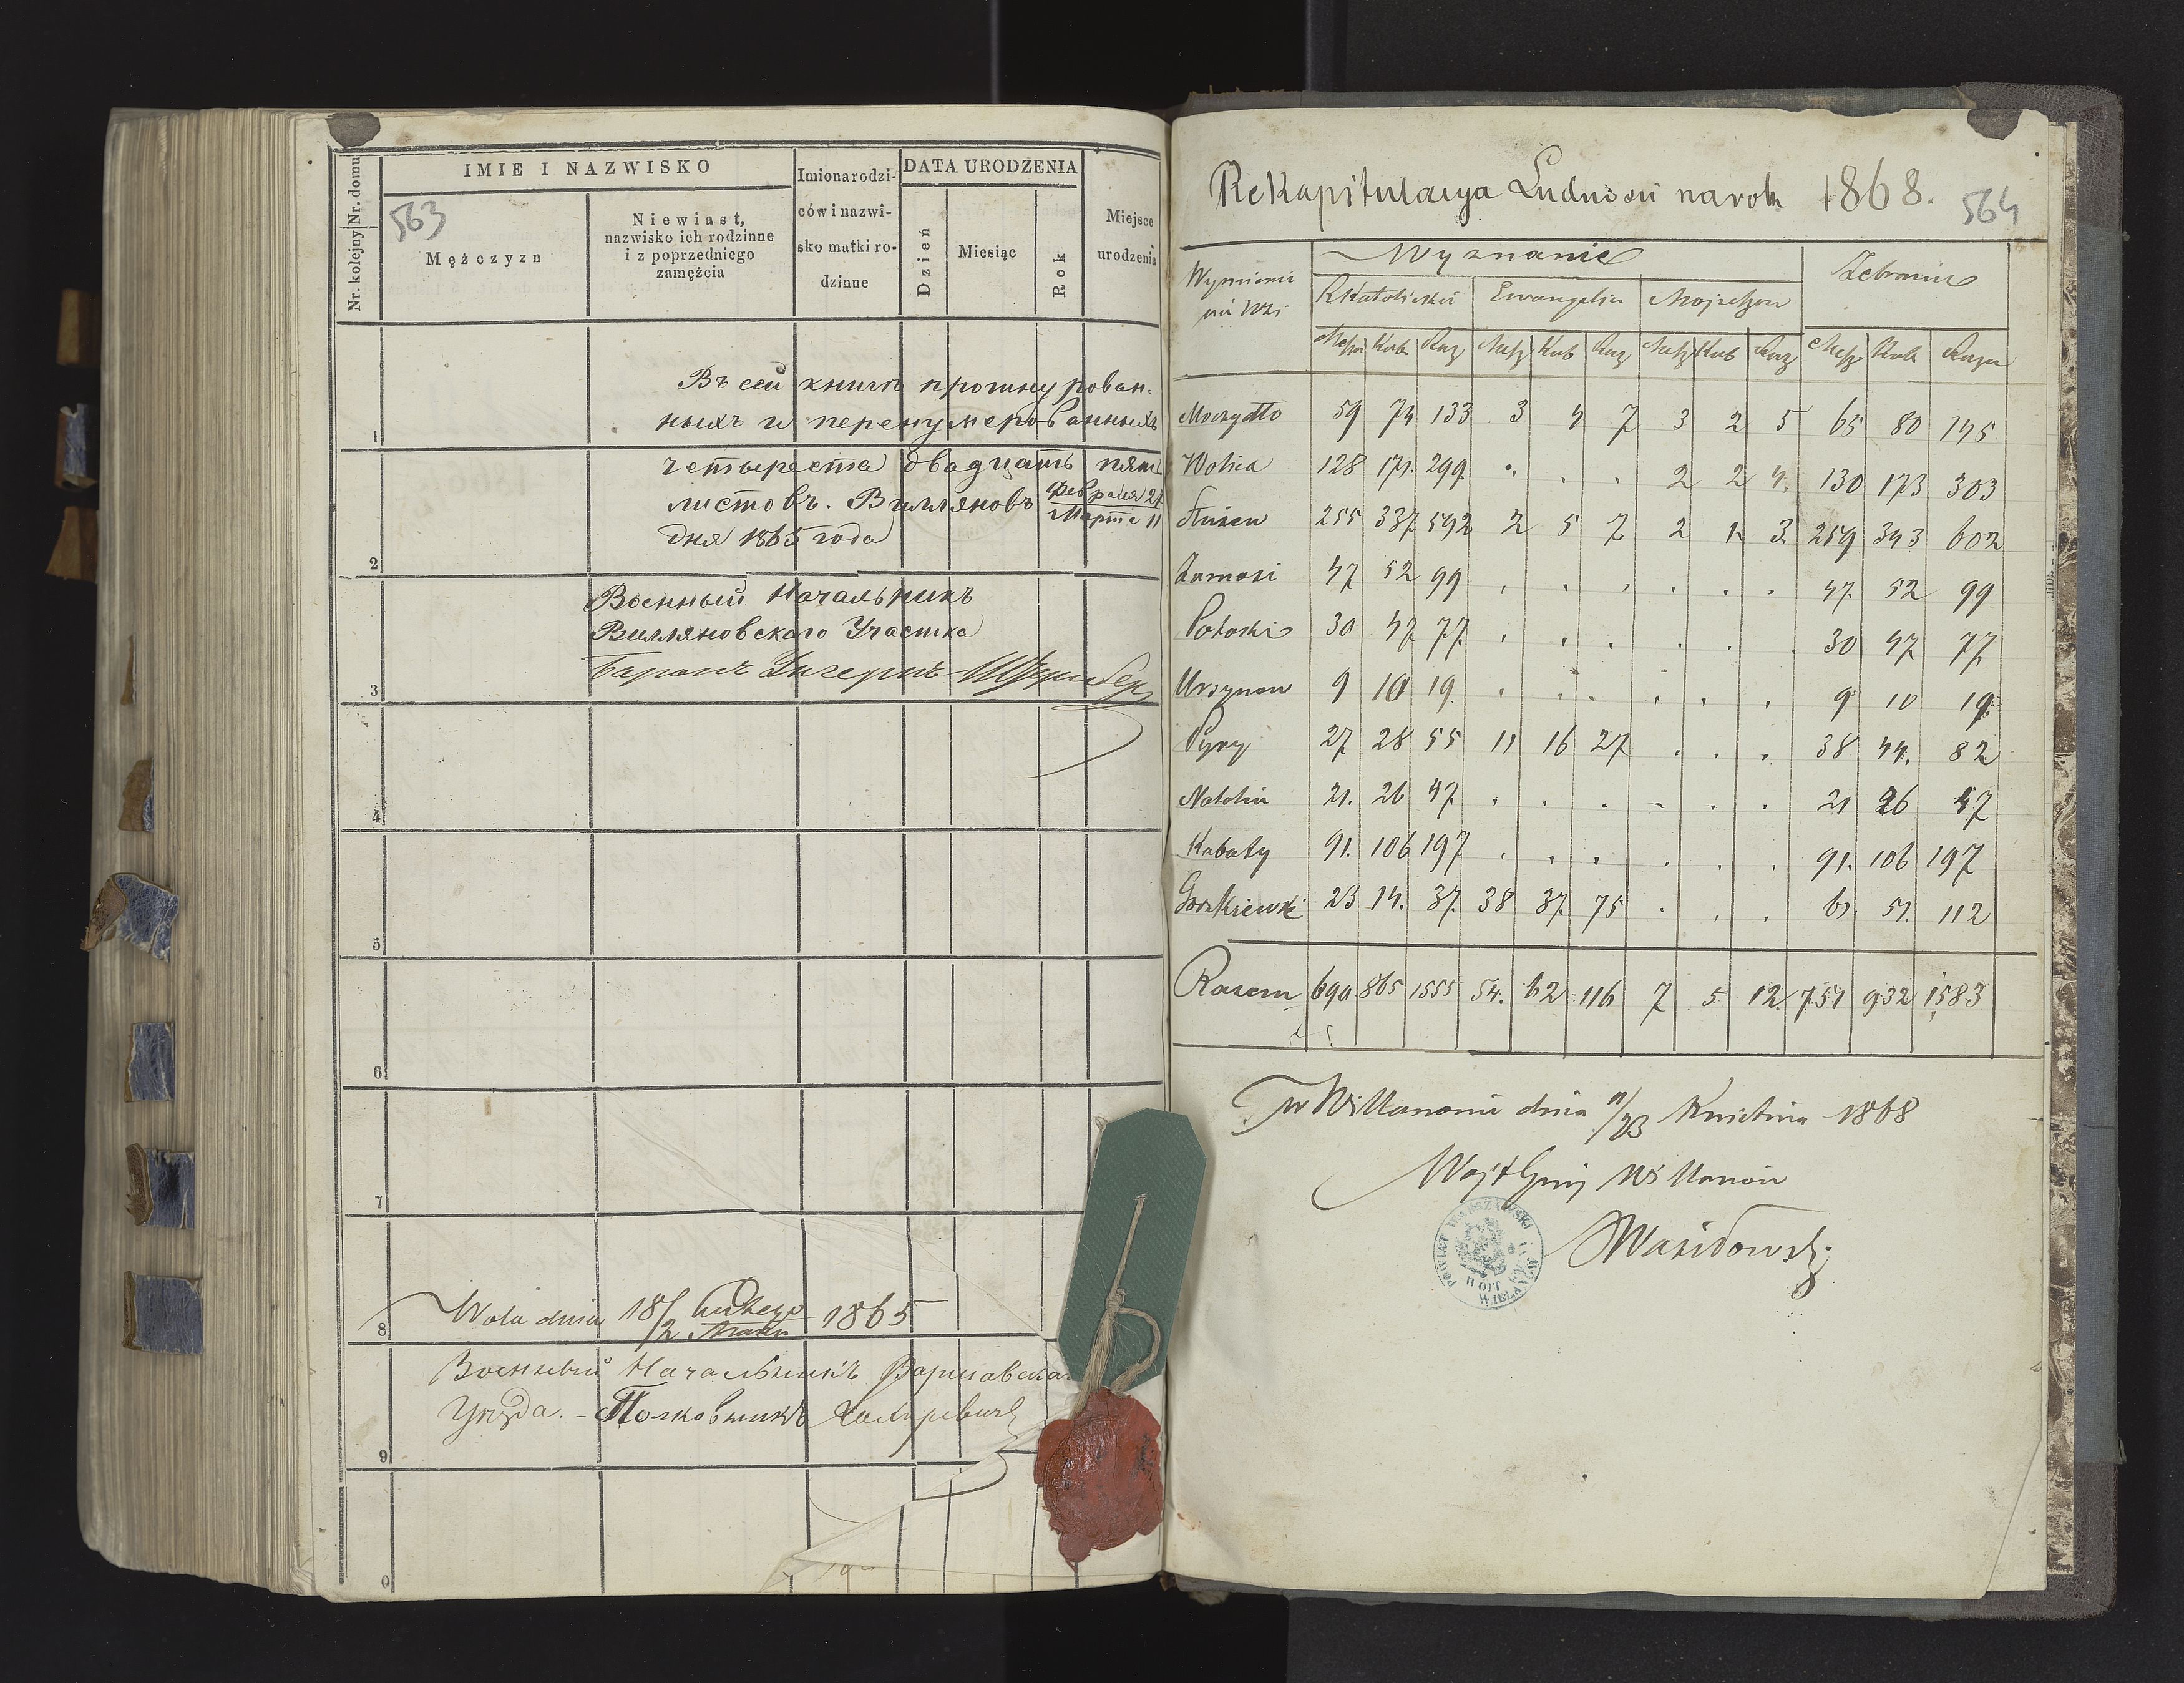 563
Nr. kolejny Nr. domu
IMIE I NAZWISKO
Mężczyzn
Niewiast,
nazwisko ich rodzinne
i z poprzedniego
zamężcia
Imiona rodzi-
ców i nazwi-
sko matki ro-
dzinne
DATA URODZENIA
Dzień
Miesiąc
Rok
Miejsce
urodzenia
Въ сей книгѣ прошнурован-
1 ныхъ и перенумерованныхъ
четыреста двадцать пять
листовъ. Вилляновъ Февраля 27
Марта 11
дня 1865 года
2
Военный Начальникъ
Вилляновскаго Участка
Баронъ
3
4
5
6
7
8 Wola dnia 18/2 Lutego 1865
Marca
Военный Начальникъ Варшавска
Уѣзда. - Полковникъ
9
0
Rekapitulacya Ludnosci na rok 1868. 564
Wyznanie
Zebranie
RKatolickie Ewangelic Mojzeszow
Męż Kob Raz Męż Kob Raz Męż Kob Raz Męż Kob Razem
Moczydło 59 74 133 3 4 7 3 2 5 65 80 145
Wolica 128 171. 299. . . . 2 2 4. 130 173 303
Służew 255 337 592 2 5 7 2 1. 3. 259 343 602
Zamosc 47 52 99 . . . . . . 47. 52 99
Potocki 30 47 77 . . . . . . 30 47 77
Ursynow 9 10 19 . . . . . . 9 10 19.
Pyry 27 28 55 11 16 27 . . . 38 44. 82
Natolin 21. 26 47 . . . . . . 21 26 47
Kabaty 91. 106 197 . . . . . . 91. 106 197
23 14. 37. 38 37. 75 . . . 61. 51. 112
Razem 690 865 1555 54. 62 116 7 5 12. 751 932 1583
w Willanowie dnia 11/23 Kwietnia 1868
Wojt Gminy Willanow
POWIAT WARSZAWSKI
WÓJT GMINY WIELANÓW